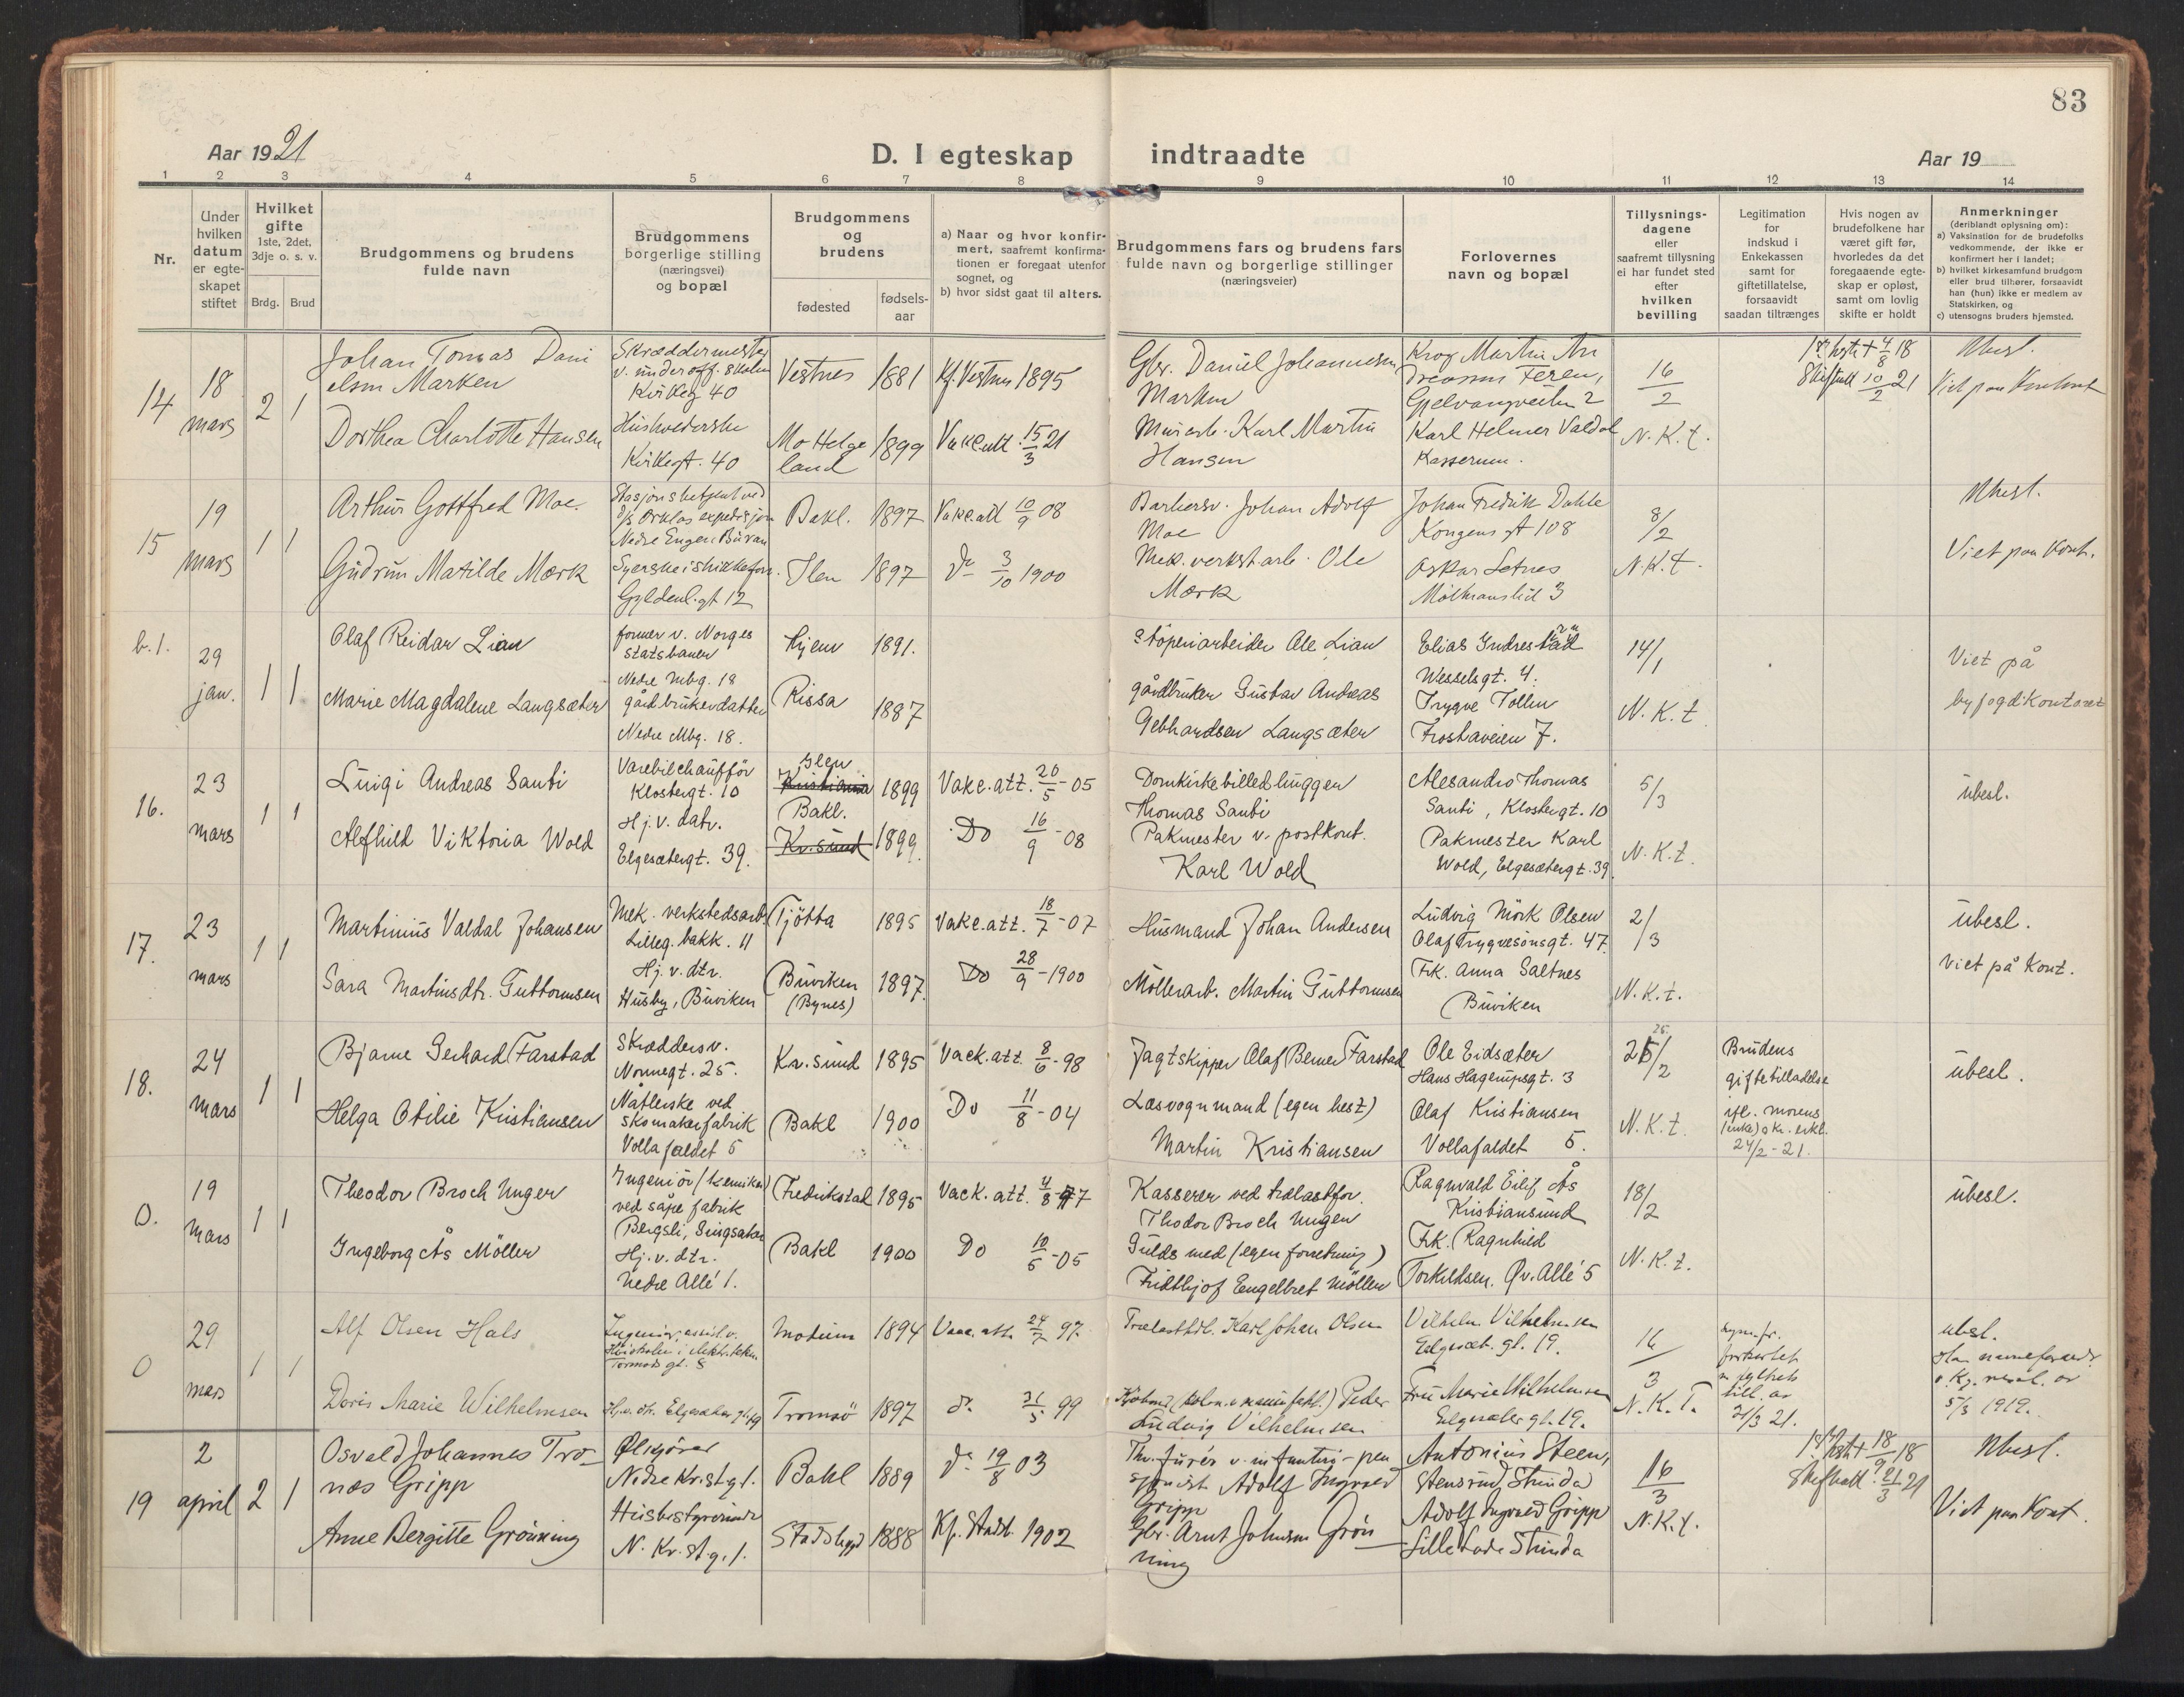 83
Aar 1921
D. I egteskap indtraadte
Aar 19
1 2 3 4 5 6 7 8 9 10 11 12 13 14
Nr.
Under hvilken datum er egte-skapet stiftet
Hvilket gifte
1ste, 2det, 3dje o. s. v.
Brdg. Brud
Brudgommens og brudens
fulde navn
Brudgommens
borgerlige stilling
(næringsvei)
og bopæl
Brudgommens
og
brudens
fødested
fødsels-
aar
a) Naar og hvor konfir-
mert, saafremt konfirma-
tionen er foregaat utenfor
sognet, og
b) hvor sidst gaat til alters.
Brudgommens fars og brudens fars
fulde navn og borgerlige stillinger
(næringsveier)
Forlovernes
navn og bopæl
Tillysnings-
dagene
eller
saafremt tillysning
ei har fundet sted
efter
hvilken
bevilling
Legitimation
for
indskud i
Enkekassen
samt for
giftetillatelse,
forsaavidt
saadan tiltrænges
Hvis nogen av
brudefolkene har
været gift før,
hvorledes da det
foregaaende egte-
skap er opløst,
samt om lovlig
skifte er holdt
Anmerkninger
(deriblandt oplysning om):
a) Vaksination for de brudefolks
vedkommende, der ikke er
konfirmert her i landet;
b) hvilket kirkesamfund brudgom
eller brud tilhører, forsaavidt
han (hun) ikke er medlem av
Statskirken, og
c) utensogns bruders hjemsted.
14
18 mars
2 1
Johan Tomas Dani
elsen Marken
Skræddermester
v. underoff. skolen
Kirkeg 40
Vestnes 1881 Kf. Vestnes 1895
Gbr. Daniel Johannesen
Marken
Gjelvangveien 2
16/2
18
10/2 21
Ubesl.
Dorthea Charlotte Hansen
Kirkegt. 40
Mo Helge
land
1899 Vakc.att 15/3 21
Karl Martin
Hansen
Karl Helmer Valdal
N.K.t.
15
19 mars
1 1
Arthur Gottfred Moe.
Bakl. 1897 Vakc.att 10/9 08
Johan Adolf
Moe
Johan Fredrik Dahle
Kongens gt 108
8/2
Ubesl.
Gudrun Matilde Mørk
Gyldenl.gt 12
Ilen 1897 do 3/10 1900
Mek. verkst.arb. Ole
Mørk
Oskar Setnes
N.K.t.
Viet paa Kont.
b.1.
29 jan.
1 1
Olaf Reidar Lian
former v. Norges
statsbaner
Nedre Mbg. 18
Hjem 1891.
Støperiarbeider Ole Lian
Elias Indrestad
Wesselsgt. 4.
14/1
Viet på
byfogdkontoret
Marie Magdalene Langsæter
gårdbrukerdatter
Nedre Mbg. 18.
Rissa
1887
gårdbruker Gustav Andreas
Gebhardsen Langsæter
Trygve Tollen
Frostaveien 7.
N.K.t.
16.
23 mars
1 1
Luigi Andreas Santi
Varebilchauffør
Klostergt. 10
Ilen
Kristiania
1899 Vakc.att. 20/5-05
Domkirkebilledhugger
Thomas Santi
Alesandro Thomas
Santi, Klostergt. 10
5/3
übesl.
Alfhild Viktoria Wold
Hj.v. datr.
Elgesætergt. 39.
Bakl.
Kr.sund
1899. Do 16/9-08
Pakmester v. postkont.
Karl Wold
Pakmester Karl
Wold, Elgesætergt. 39
N.K.t.
17.
23 mars
1 1
Martinus Valdal Johansen
Mek. verkstedsarb
Lilleg. bakk. 11
Tjötta 1895 Vakc.att. 18/7-07
Husmand Johan Andersen
Ludvig Mörk Olsen
Olaf Trygvesönsgt. 47
2/3
übesl.
Sara Martinsdtr. Guttormsen
Hj.v.dtr.
Husby, Büviken
Büviken
(Bynes)
1897. Do 28/9-1900
Möllerarb. Martin Guttormsen
Frk. Anna Saltnes
Büviken
N.K.t.
Viet på Kont.
18.
24 mars
1 1
Bjarne Gerhard Farstad
Skræddersv.
Nonnegt. 25.
Kr.sund 1895 Vack.att 8/6-98
Jagtskipper Olaf Berner Farstad
Ole Eidsæter
Hans Hagerupsgt. 3
25
25/2
Brudens
giftetilladelse
ifl. morens
(enke) skr. erkl.
24/2-21.
übesl.
Helga Otilie Kristiansen
Nåtlerske ved
skomakerfabrik
Vollafaldet 5
Bakl 1900 Do 11/8-04
Læsvognmand (egen hest)
Martin Kristiansen
Olaf Kristiansen
Vollafaldet 5.
N.K.t.
0.
19 mars
1 1
Theodor Broch Unger
Ingeniör (kemiker)
ved såpefabrik
Bergsli, Singsaker
Fredrikstad 1895 Vack.att. 4/8-97
Kasserer ved trælastfor.
Thodor Broch Unger
Ragnvald Eilif Ås
Kristiansund
18/2
übesl.
Ingeborg Ås Möller
Hj.v.dtr.
Nedre Allé 1.
Bakl 1900 Do 10/5-05
Guldsmed (egen forretning)
Fridthjof Eengelbret Möller
Frk. Ragnhild
Torkildsen. Øv. Allé 5
N.K.t.
0
29 mars
1 1
Alf Olsen Hals
Tormods gt. 8
Modum 1894 Vacc. att. 24/7 97.
Trælasthdl. Karl Johan Olsen
Vilhelm Vilhelmsen
Elgesæt. gt. 19.
16/3
till. av
21/3 21.
ubesl.
5/3 1919.
Doris Marie Wilhelmsen
Hj.v. dtr. Elgesæter gt. 19
Tromsö 1897 do. 31/5 99
Peder
Ludvig Vilhelmsen
Fru Marie Wilhelmsen
Elgesæter gt. 19.
N.K.T.
19
2 april
2 1
Osvald Johannes Tro-
næs Gripp
Ølkjører
Nedre Kr.st.g.1.
Bakl 1889 do 19/8 03
Adolf Ingvald
Gripp
Antonius Steen,
Stensrud Strinda
16/3
18/9 18
21/3 21
Ubesl.
Anne Bergitte Grönning
Husbestyrerinde
N. Kr.st.g.1.
Stadsbygd 1888 Kf. Stadsb. 1902
Gbr. Arnt Johnsen Grön
ning
Adolf Ingvald Gripp
Lille Lade Strinda
N.K.t.
Viet paa Kont.